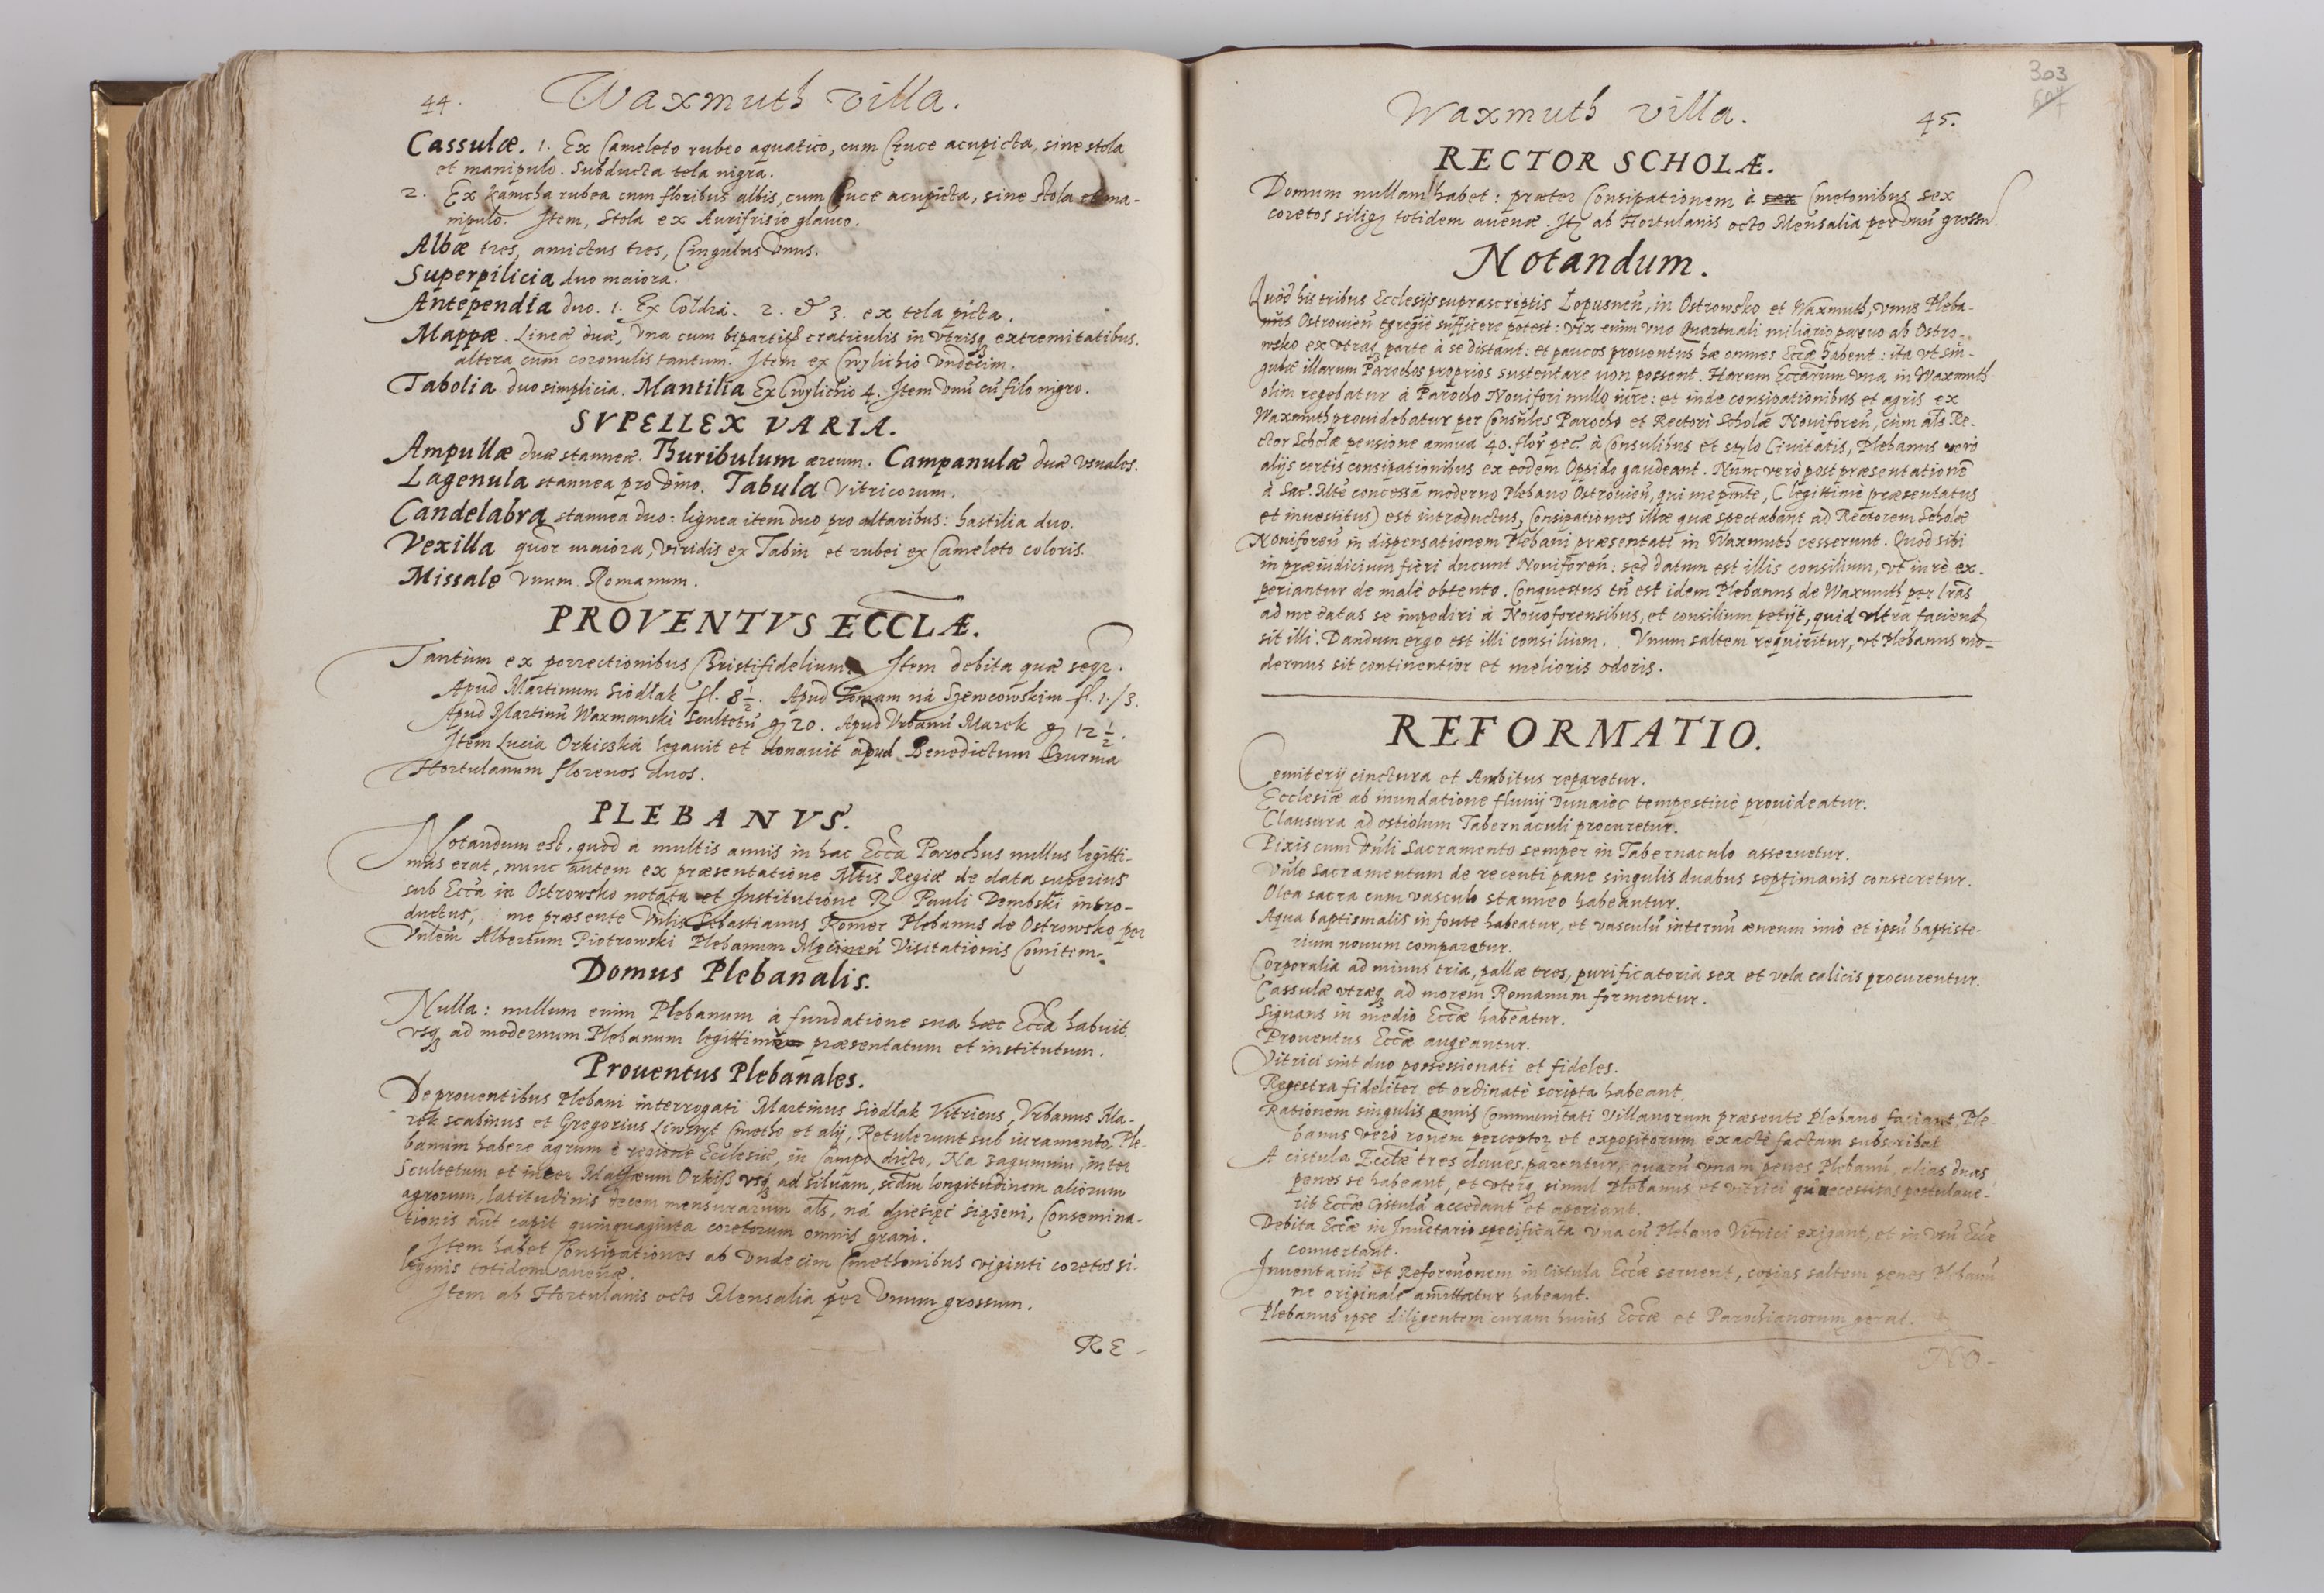 44.
Waxmuth villa.
Cassulæ. 1. Ex Cameleto rubeo aquatico, cum Cruce acupicta, sine stola
et manipulo. Subducta tela nigra.
2. Ex kamcha rubea cum floribus albis, cum Cruce acupicta, sine stola et ma-
nipulo. Item, Stola ex Aurifrisio glauco.
Albæ tres, amictus tres, Cingulus vnus.
Superpilicia duo maiora.
Antependia duo. 1. Ex Coldra. 2. & 3. ex tela picta.
Mappæ. Lineæ duæ, vna cum craticulis in vtrisq extremitatibus.
altera cum coronulis tantum. Item ex Cwylichio vndecim.
Tabolia duo simplicia. Mantilia Ex Cwylichio 4. Item vnu cu filo nigro.
SVPELLEX VARIA.
Ampullæ duæ stanneæ. Thuribulum æreum. Campanulæ duæ vsuales.
Lagenula stannea pro vino. Tabula Vitricorum.
Candelabra stannea duo: lignea item duo pro altaribus: hastilia duo.
Vexilla quor maiora, viridis ex Tabin et rubei ex Cameleto coloris.
Missale vnum Romanum.
PROVENTVS ECCLÆ.
Tantum ex porrectionibus Christifidelium. Item debita quæ seqr.
Apud Martinum Siodlak fl. 8½. Apud Tomam na Szewcowskim fl. 1./3.
Apud Martinū Waxmanski Scultetū g 20. Apud Vrbanū Marek g 12½.
Item Lucia Orkiszka legauit et donauit apud Benedictum
Hortulanum florenos duos.
PLEBANVS.
Notandum est, quod à multis annis in hac Ecca Parochus nullus legitti-
mus erat, nunc autem ex præsentatione Mtis Regiæ de data superius
sub Ecca in Ostrowsko notata et Institutione R Pauli Dembski intro-
ductus, me præsente Vnlis Sebastianus Romer Plebanus de Ostrowsko per
Vnlem Albertum Piotrowski Plebanum Visitationis Comitem.
Domus Plebanalis.
Nulla: nullum enim Plebanum à fundatione sua hæc Ecca habuit
vsq ad modernum Plebanum legittimè præsentatum et institutum.
Prouentus Plebanales.
De prouentibus Plebani interrogati Martinus Siodlak Vitricus, Vrbanus Ma-
rek scabinus et Gregorius Cmetho et alij, Retulerunt sub iuramento, Ple-
banum habere agrum è regione Ecclesiæ, in Campo dicto, Na zagumniu, inter
Scultetum et inter Mathæum Orkisz vsq ad siluam, scdm longitudinem aliorum
agrorum, latitudinis decem mensurarum als, ná dziesięć siążeni, Consemina-
tionis aūt capit quinquaginta coretorum omnis grani.
Item habet Consipationes ab vndecim Cmethonibus viginti coretos si-
leginis totidem auenæ.
Item ab Hortulanis octo Mensalia per vnum grossum.
RE-
303
Waxmuth villa.
45.
RECTOR SCHOLÆ.
Domum nullam habet: præter Consipationem à Cmetonibus sex
coretos silig totidem auenæ. It ab Hortulanis octo Mensalia per vnū grossū.
Notandum.
Quod his tribus Ecclesijs suprascriptis Lopusneñ, in Ostrowsko et Waxmuth, vnus Pleba-
nus Ostrouieñ egregiè sufficere potest: vix enim vno Quartuali miliario paruo ab Ostro-
wsko ex vtraq parte à se distant: et paucos prouentus hæ omnes Eccæ habent: ita vt sin-
gulæ illarum Parochos proprios sustentare non possent. Harum Eccarum vna in Waxmuth
olim regebatur à Parocho Nouifori nullo iure: et inde consipationibus et agris ex
Waxmuth prouidebatur per Consules Parocho et Rectori Scholæ Nouiforeñ, cùm als Re-
ctor Scholæ pensione annua 40. flor pec à Consulibus et stylo Ciuitatis, Plebanus verò
alijs certis consipationibus ex eodem Oppido gaudeant. Nunc verò post præsentationē
à Sac. Mte concessā moderno Plebano Ostrouieñ, qui me pnte, (legittimè præsentatus
et inuestitus) est introductus, Consipationes illæ quæ spectabant ad Rectorem Scholæ
Nouiforeñ in dispensationem Plebani præsentati in Waxmuth cesserunt. Quod sibi
in præiudicium fieri ducunt Nouiforeñ: sed datum est illis consilium, vt iure ex-
periantur de malè obtento. Conquestus tñ est idem Plebanus de Waxmuth per lras
ad me datas se impediri à Nouoforensibus, et consilium petijt, quid vltra faciend
sit illi. Dandum ergo est illi consilium. Vnum saltem requiritur, vt Plebanus mo-
dernus sit continentior et melioris odoris.
REFORMATIO.
Cemiterij cinctura et Ambitus reparetur.
Ecclesiæ ab inundatione fluuij Dunaiec tempestiuè prouideatur.
Clausura ad ostiolum Tabernaculi procuretur.
Pixis cum Vnli Sacramento semper in Tabernaculo asseruetur.
Vnle Sacramentum de recenti pane singulis duabus septimanis consecretur.
Olea sacra cum vasculo stanneo habeantur.
Aqua baptismalis in fonte habeatur, et vasculū internū æneum imò et ipsū baptiste-
rium nouum comparetur.
Corporalia ad minus tria, pallæ tres, purificatoria sex et vela calicis procurentur.
Cassulæ vtræq ad morem Romanum formentur.
Signans in medio Eccæ habeatur.
Prouentus Eccæ augeantur.
Vitrici sint duo possessionati et fideles.
Regestra fideliter et ordinatè scripta habeant.
Rationem singulis annis Communitati Villanorum præsente Plebano faciant, Ple-
banus verò ronem perceptor et expositorum exactè factam subscribat
A cistula Ecclæ tres claues parentur, quarū vnam penes Plebanū, alias duas
penes se habeant, et vterq simul Plebanus et vitrici necessitas postulaue-
rit Eccæ Cistulā accedant et aperiant.
Debita Eccæ in Inuentario specificata vna cū Plebano Vitrici exigant, et in vsū Eccæ
conuertant.
Inuentariū et Reformonem in Cistula Eccæ seruent, copias saltem penes Plebanū
ne originale amittatur habeant.
Plebanus ipse diligentem curam huius Eccæ et Parochianorum gerat.
NO-